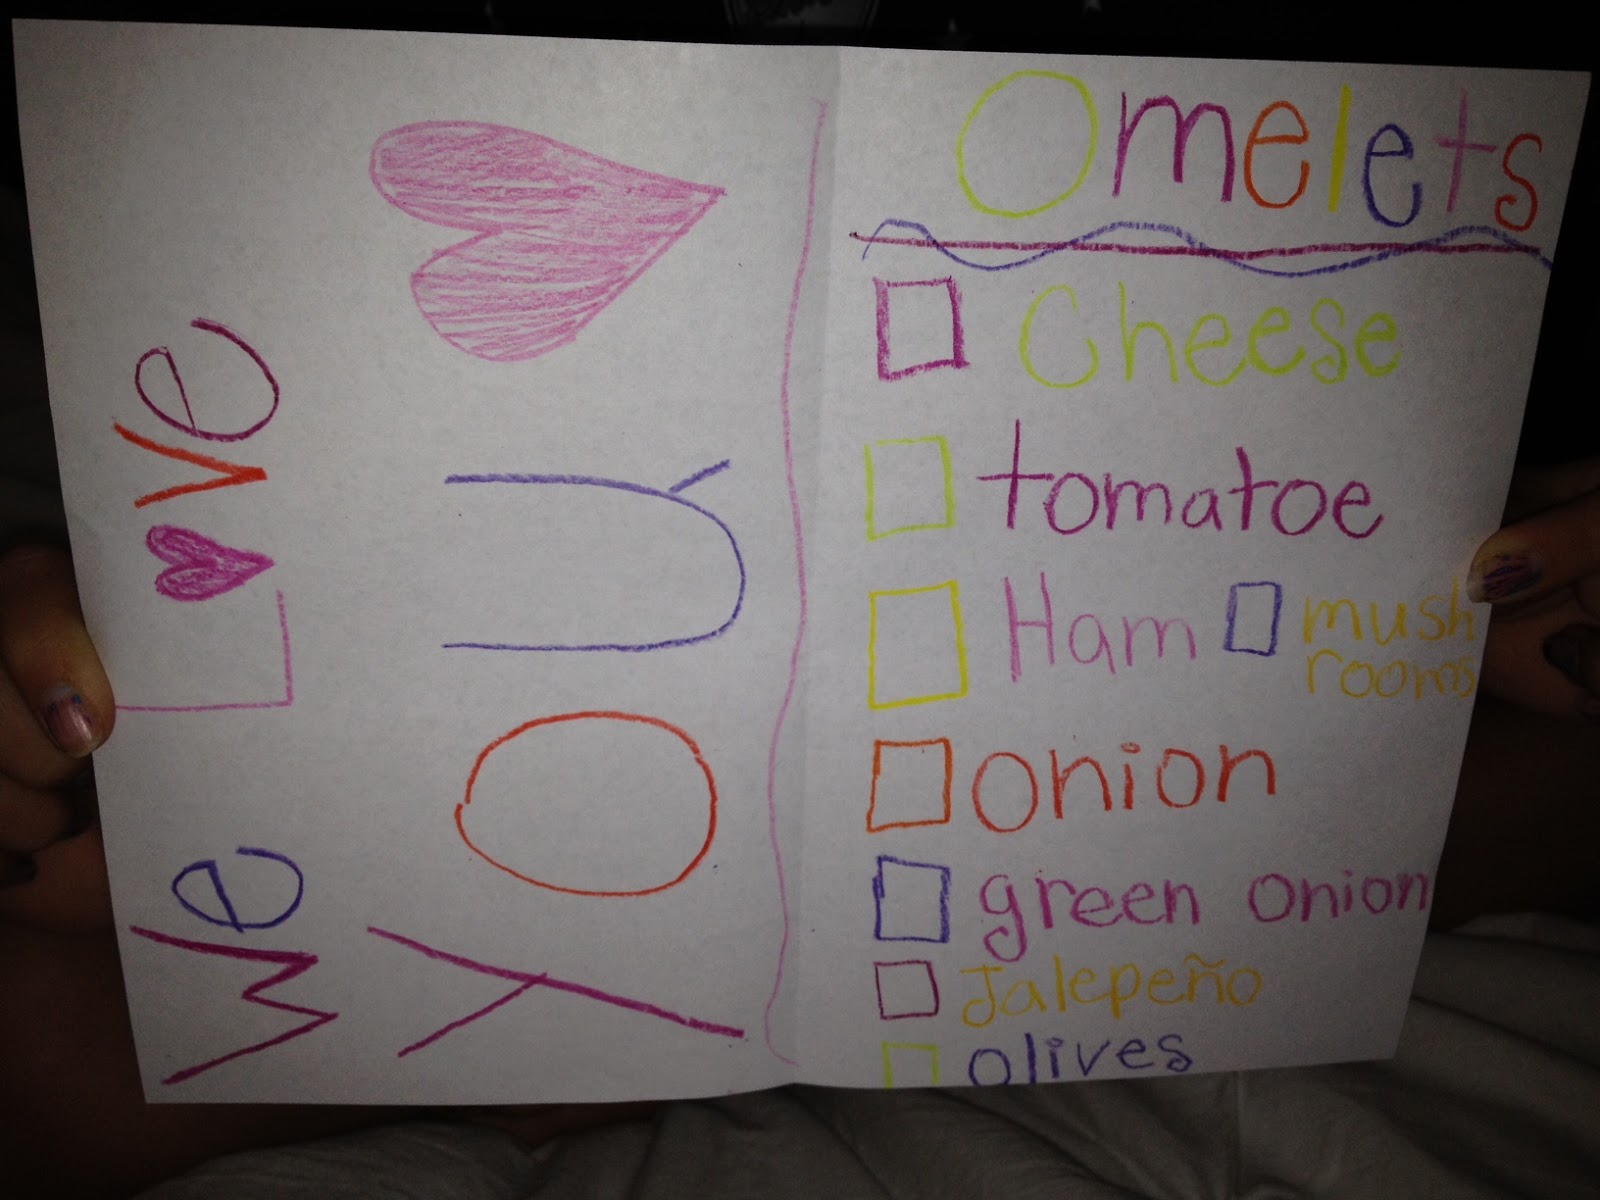 We Love
YOU
Omelets
Cheese
tomatoe
Ham
mush
rooms
onion
green onion
Jalepeño
olives